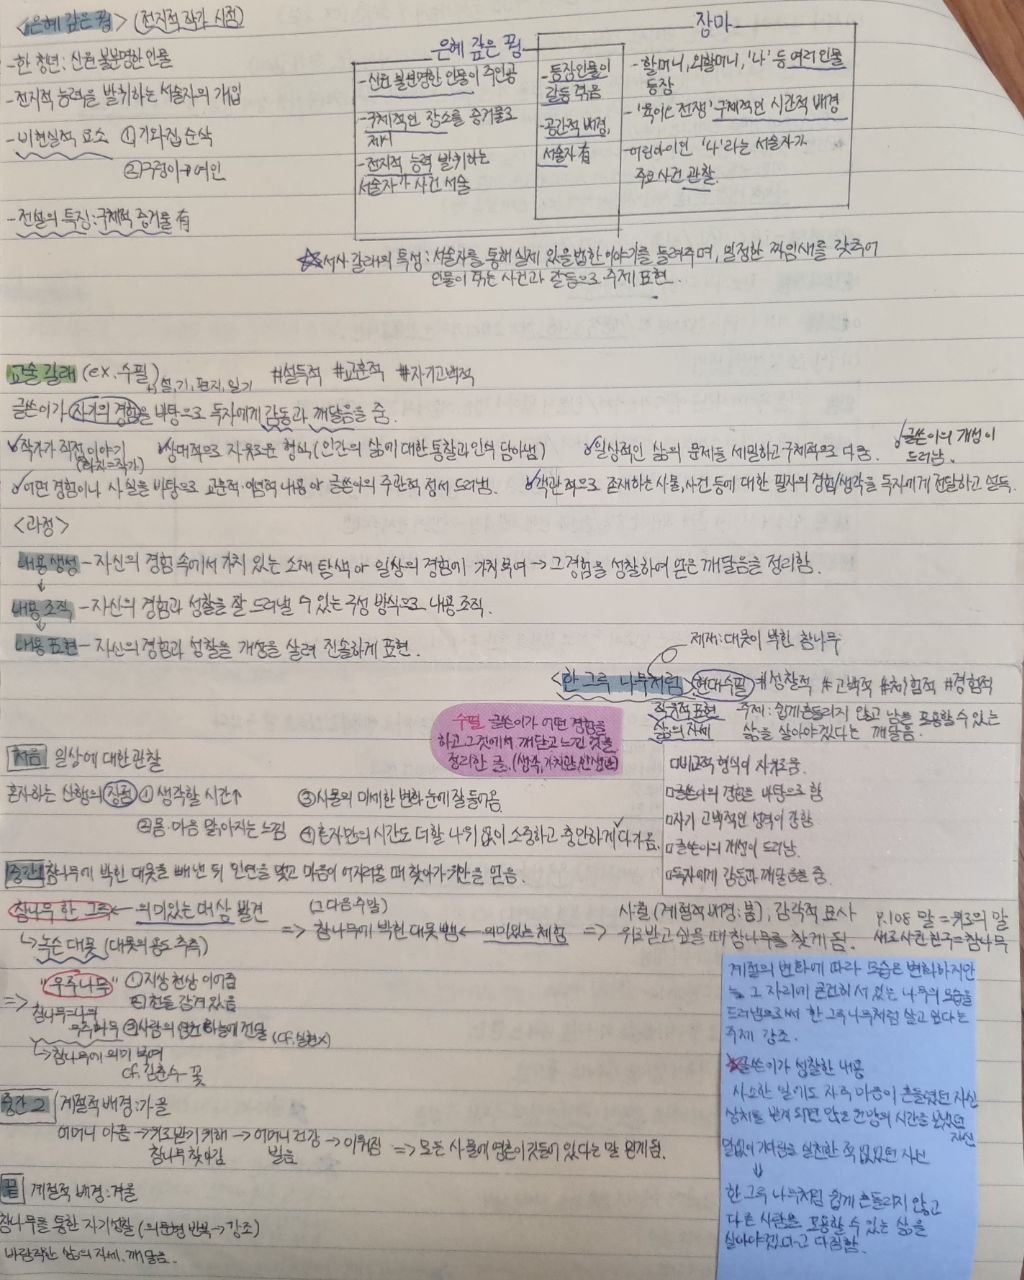 <은혜 갚은 꿩> (전지적 작가 시점)
-한 청년: 신원 불분명한 인물
-전지적 능력을 발휘하는 서술자의 개입
-비현실적 요소 ①기와집 순삭
②구렁이→여인
-전설의 특징: 구체적 증거물 有
은혜 갚은 꿩
-신원 불분명한 인물이 주인공
-구체적인 장소를 증거물로
제시
-전지적 능력 발휘하는
서술자가 사건 서술
-등장인물이
갈등 겪음
-공간적 배경,
서술자 有
장마
-할머니, 외할머니, '나' 등 여러 인물
등장
-'육이오 전쟁' 구체적인 시간적 배경
-어린아이인 '나'라는 서술자가
주요사건 관찰.
☆서사 갈래의 특성: 서술자를 통해 실제 있을 법한 이야기를 들려주며, 일정한 짜임새를 갖추어
인물이 겪는 사건과 갈등으로 주제 표현.
교술 갈래 (ex. 수필) #설득적 #교훈적 #자기고백적
↳설, 기, 편지, 일기
글쓴이가 자기의 경험을 바탕으로 독자에게 감동과 깨달음을 줌.
✓작가가 직접 이야기 ✓상대적으로 자유로운 형식(인간의 삶에 대한 통찰과 인식 담아냄) ✓일상적인 삶의 문제를 세밀하고 구체적으로 다룸. ✓글쓴이의 개성이
드러남.
✓어떤 경험이나 사실을 바탕으로 교훈적·이념적 내용 or 글쓴이의 주관적 정서 드러냄. ✓객관적으로 존재하는 사물, 사건 등에 대한 필자의 경험/생각을 독자에게 전달하고 설득.
<과정>
내용 생성 - 자신의 경험 속에서 가치 있는 소재 탐색 or 일상의 경험에 가치 부여 → 그 경험을 성찰하여 얻은 깨달음을 정리함.
↓
내용 조직 - 자신의 경험과 성찰을 잘 드러낼 수 있는 구성 방식으로 내용 조직.
↓
내용 표현 - 자신의 경험과 성찰을 개성을 살려 진솔하게 표현.
제재: 대못이 박힌 참나무
<한 그루 나무처럼> 현대수필 #성찰적 #고백적 #체험적 #경험적
삶의 자세
주제: 쉽게 흔들리지 않고 남을 포용할 수 있는
삶을 살아야겠다는 깨달음.
수필 글쓴이가 어떤 경험을
하고 그것에서 깨닫고 느낀 것을
정리한 글. (생각, 가치관, 인생관)
□비교적 형식이 자유로움.
□글쓴이의 경험을 바탕으로 함
□자기 고백적인 성격이 강함
□글쓴이의 개성이 드러남.
□독자에게 감동과 깨달음을 줌.
처음 일상에 대한 관찰
혼자하는 산행의 장점 ①생각할 시간↑ ③사물의 미세한 변화 눈에 잘 들어옴
②몸·마음 맑아지는 느낌 ④혼자만의 시간도 더할 나위 없이 소중하고 충만하게 다가옴.
중간1 참나무에 박힌 대못을 빼낸 뒤 인연을 맺고 마음이 어지러울 때 찾아가 위안을 얻음.
참나무 한 그루 ← 의미있는 대상 발견
↳녹슨 대못 (대못의 용도 추측)
(그 다음 주말)
⇒ 참나무에 박힌 대못 뺌 ← 의미있는 체험
⇒ 사흘 (계절적 배경: 봄), 감각적 묘사
위로받고 싶을 때 참나무를 찾게 됨.
P.108 말 = 위로의 말
새로 사귄 친구=참나무
⇒ "우주나무" ①지상 천상 이어줌
②신들 잠겨 있음
참나무=나의
우주나무 ③사람의 염원 하늘에 전달
↳참나무에 의미 부여
cf. 김춘수-꽃
중간 2 계절적 배경: 가을
어머니 아픔 → 위로받기 위해 → 어머니 건강 → 이뤄짐 ⇒ 모든 사물에 영혼이 깃들어 있다는 말 믿게 됨.
참나무 찾아감 빌음
끝 계절적 배경: 겨울
참나무를 통한 자기성찰 (의문형 반복→강조)
바람직한 삶의 자세, 깨달음.
계절의 변화에 따라 모습은 변화하지만
늘 그 자리에 굳건히 서 있는 나무의 모습을
드러냄으로써 한 그루 나무처럼 살고 싶다는
주제 강조.
★글쓴이가 성찰한 내용
사소한 일에도 자주 마음이 흔들렸던 자신
상처를 받게 되면 많은 원망의 시간을 보냈던
자신
말없이 기다림을 실천한 적 없었던 자신
↓
한 그루 나무처럼 쉽게 흔들리지 않고
다른 사람을 포용할 수 있는 삶을
살아야겠다고 다짐함.